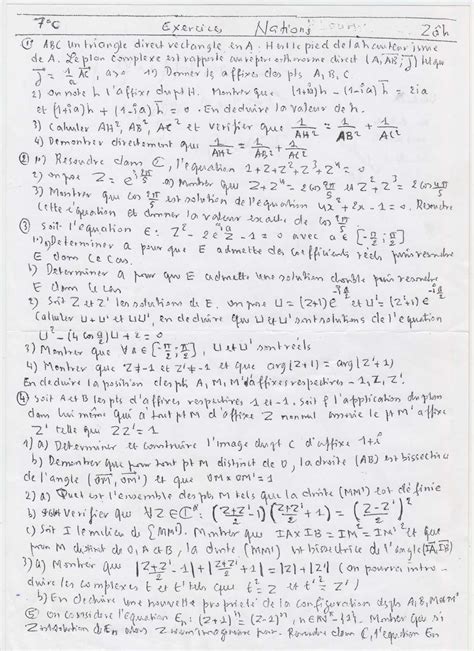 7°C Exercices Nations 20h
① ABC un triangle direct rectangle en A. H est le pied de la hauteur issue
de A. Le plan complexe est rapporté au repère orthonormé direct (A, AB, j) tel que
j = 1/a AC, a>0 1) Donner les affixes des pts A, B, C
2) on note h l'affixe du pt H. Montrer que (1+ia)h - (1-ia)h̄ = 2ia
et (1+ia)h + (1-ia)h̄ = 0. En déduire la valeur de h.
3) Calculer AH², AB², AC² et vérifier que 1/AH² = 1/AB² + 1/AC²
4) Démontrer directement que 1/AH² = 1/AB² + 1/AC²
② 1) Résoudre dans C, l'équation 1+z+z²+z³+z⁴ = 0
2) on pose z = e^(i2π/5) a) Montrer que z+z⁴ = 2cos 2π/5 et z²+z³ = 2cos 4π/5
3) Montrer que cos 2π/5 est solution de l'équation 4x²+2x-1 = 0. Résoudre
cette équation et donner la valeur exacte de cos 2π/5
③ Soit l'équation E: z² - 2e^(ia) z - 1 = 0 avec a ∈ [-π/2; π/2]
1) a) Déterminer a pour que E admette des coefficients réels puis résoudre
E dans ce cas.
b) Déterminer a pour que E admette une solution double puis résoudre
E dans ce cas
2) Soit z et z' les solutions de E. on pose u = (z+1)e^(-ia/2) et u' = (z'+1)e^(-ia/2)
Calculer u+u' et uu', en déduire que u et u' sont solutions de l'équation
3) Montrer que ∀a∈[-π/2; π/2], u et u' sont réels
4) Montrer que z≠-1 et z'≠-1 et que arg(z+1) = arg(z'+1)
En déduire la position des pts A, M, M' d'affixes respectives -1, z, z'.
④ Soit A et B les pts d'affixes respectives 1 et -1. Soit f l'application du plan
dans lui même qui à tout pt M d'affixe z non nul associe le pt M' affixe
z' telle que zz' = 1
1) a) Déterminer et construire l'image du pt C d'affixe 1+i
b) Démontrer que pour tout pt M distinct de O, la droite (AB) est bissectrice
de l'angle (OM, OM') et que OM × OM' = 1
2) a) Quel est l'ensemble des pts M tels que la droite (MM') est définie
b) Vérifier que ∀z∈C*: ((z+z')/2 - 1)((z+z')/2 + 1) = ((z-z')/2)²
c) Soit I le milieu de [MM']. Montrer que IA×IB = IM² = IM'² et que
pour M distinct de O, A et B, la droite (MM') est bissectrice de l'angle (IA, IB)
3) a) Montrer que |(z+z')/2 - 1| + |(z+z')/2 + 1| = |z| + |z'| (on pourra intro-
duire les complexes t et t' tels que t² = z et t'² = z')
b) En déduire une nouvelle propriété de la configuration des pts A, B, M et M'
⑤ on considère l'équation Eₙ: (z+1)ⁿ = (z-1)ⁿ, Montrer que si
z est solution de Eₙ alors z est imaginaire pur. Résoudre dans C, l'équation Eₙ